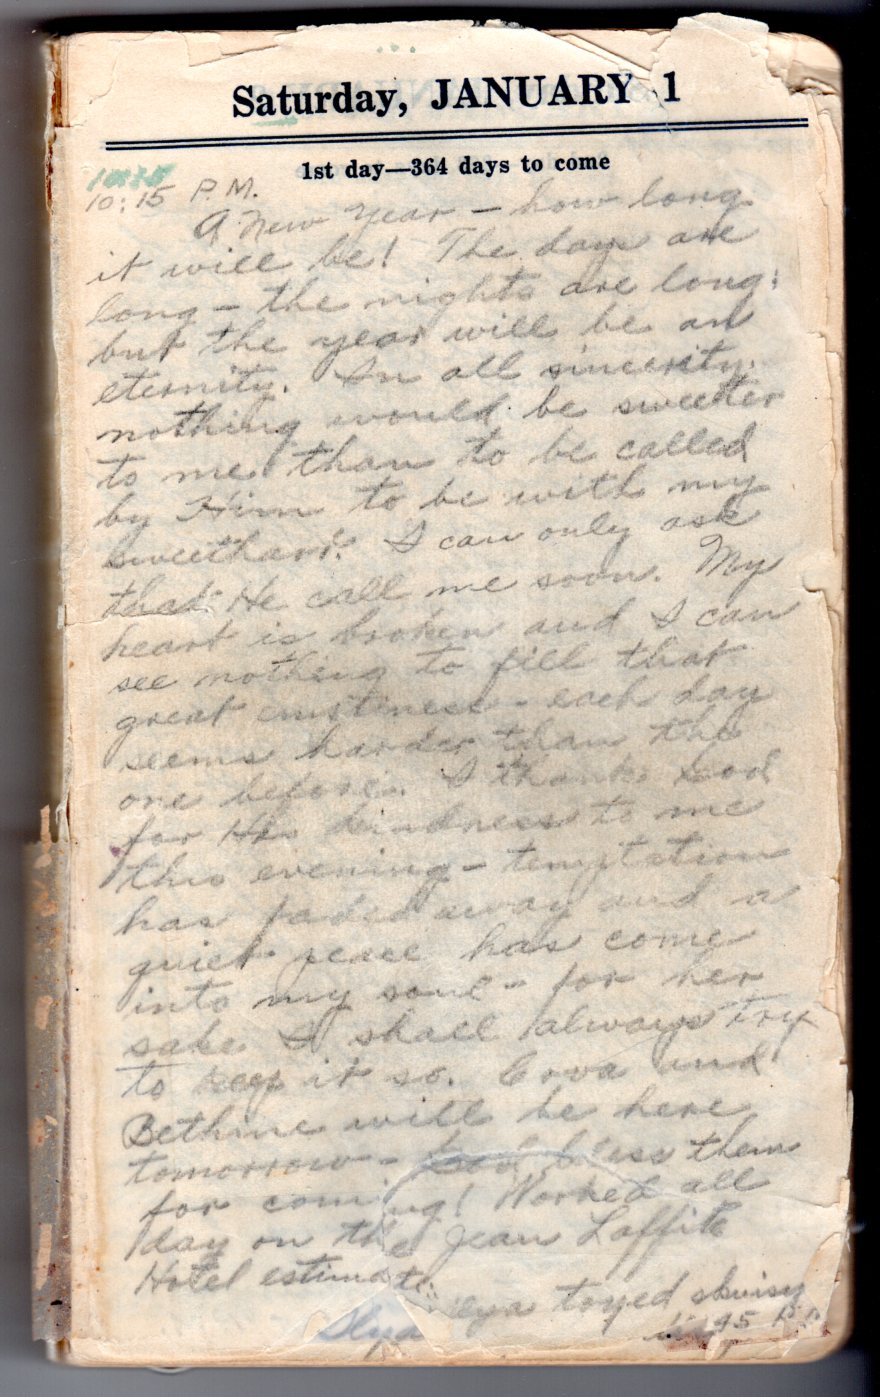 Saturday, JANUARY 1
1st day—364 days to come
10:15 P.M.
A New Year – how long
it will be! The days are
long – the nights are long;
but the year will be an
eternity. In all sincerity,
nothing would be sweeter
to me than to be called
by Him to be with my
sweetheart. I can only ask
that He call me soon. My
heart is broken and I can
see nothing to fill that
great emptiness – each day
seems harder than the
one before. I thank God
for His kindness to me
this evening – temptation
has faded away and a
quiet peace has come
into my soul – for her
sake I shall always try
to keep it so. Cova and
Bethine will be here
tomorrow – God bless them
for coming! Worked all
day on the Jean Laffite
Hotel estimate.
toyed
45 P.M.